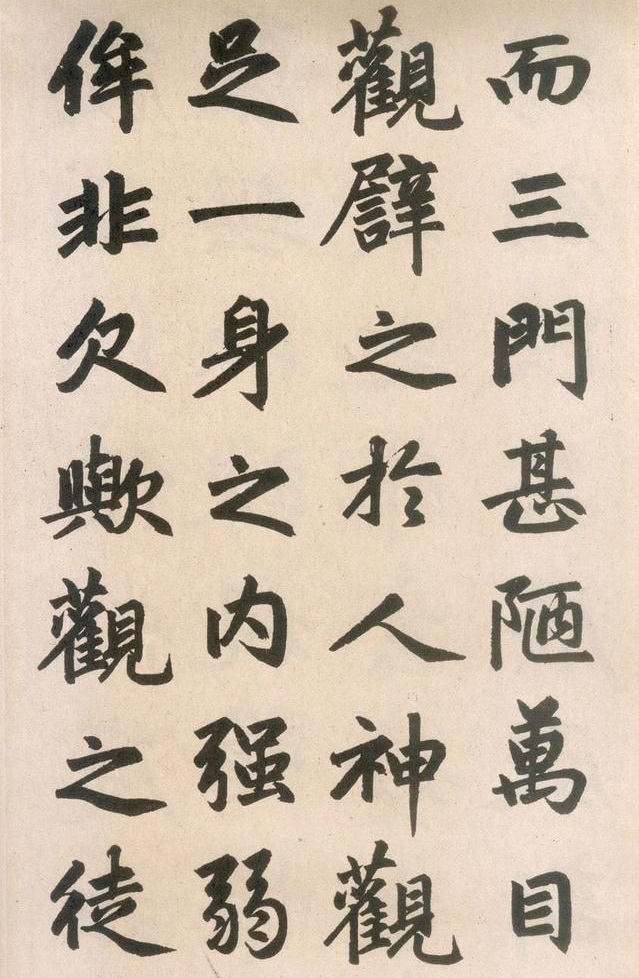 而三門甚陋萬目
觀譬之於人神觀
足一身之内强弱
侔非欠歟觀之徒